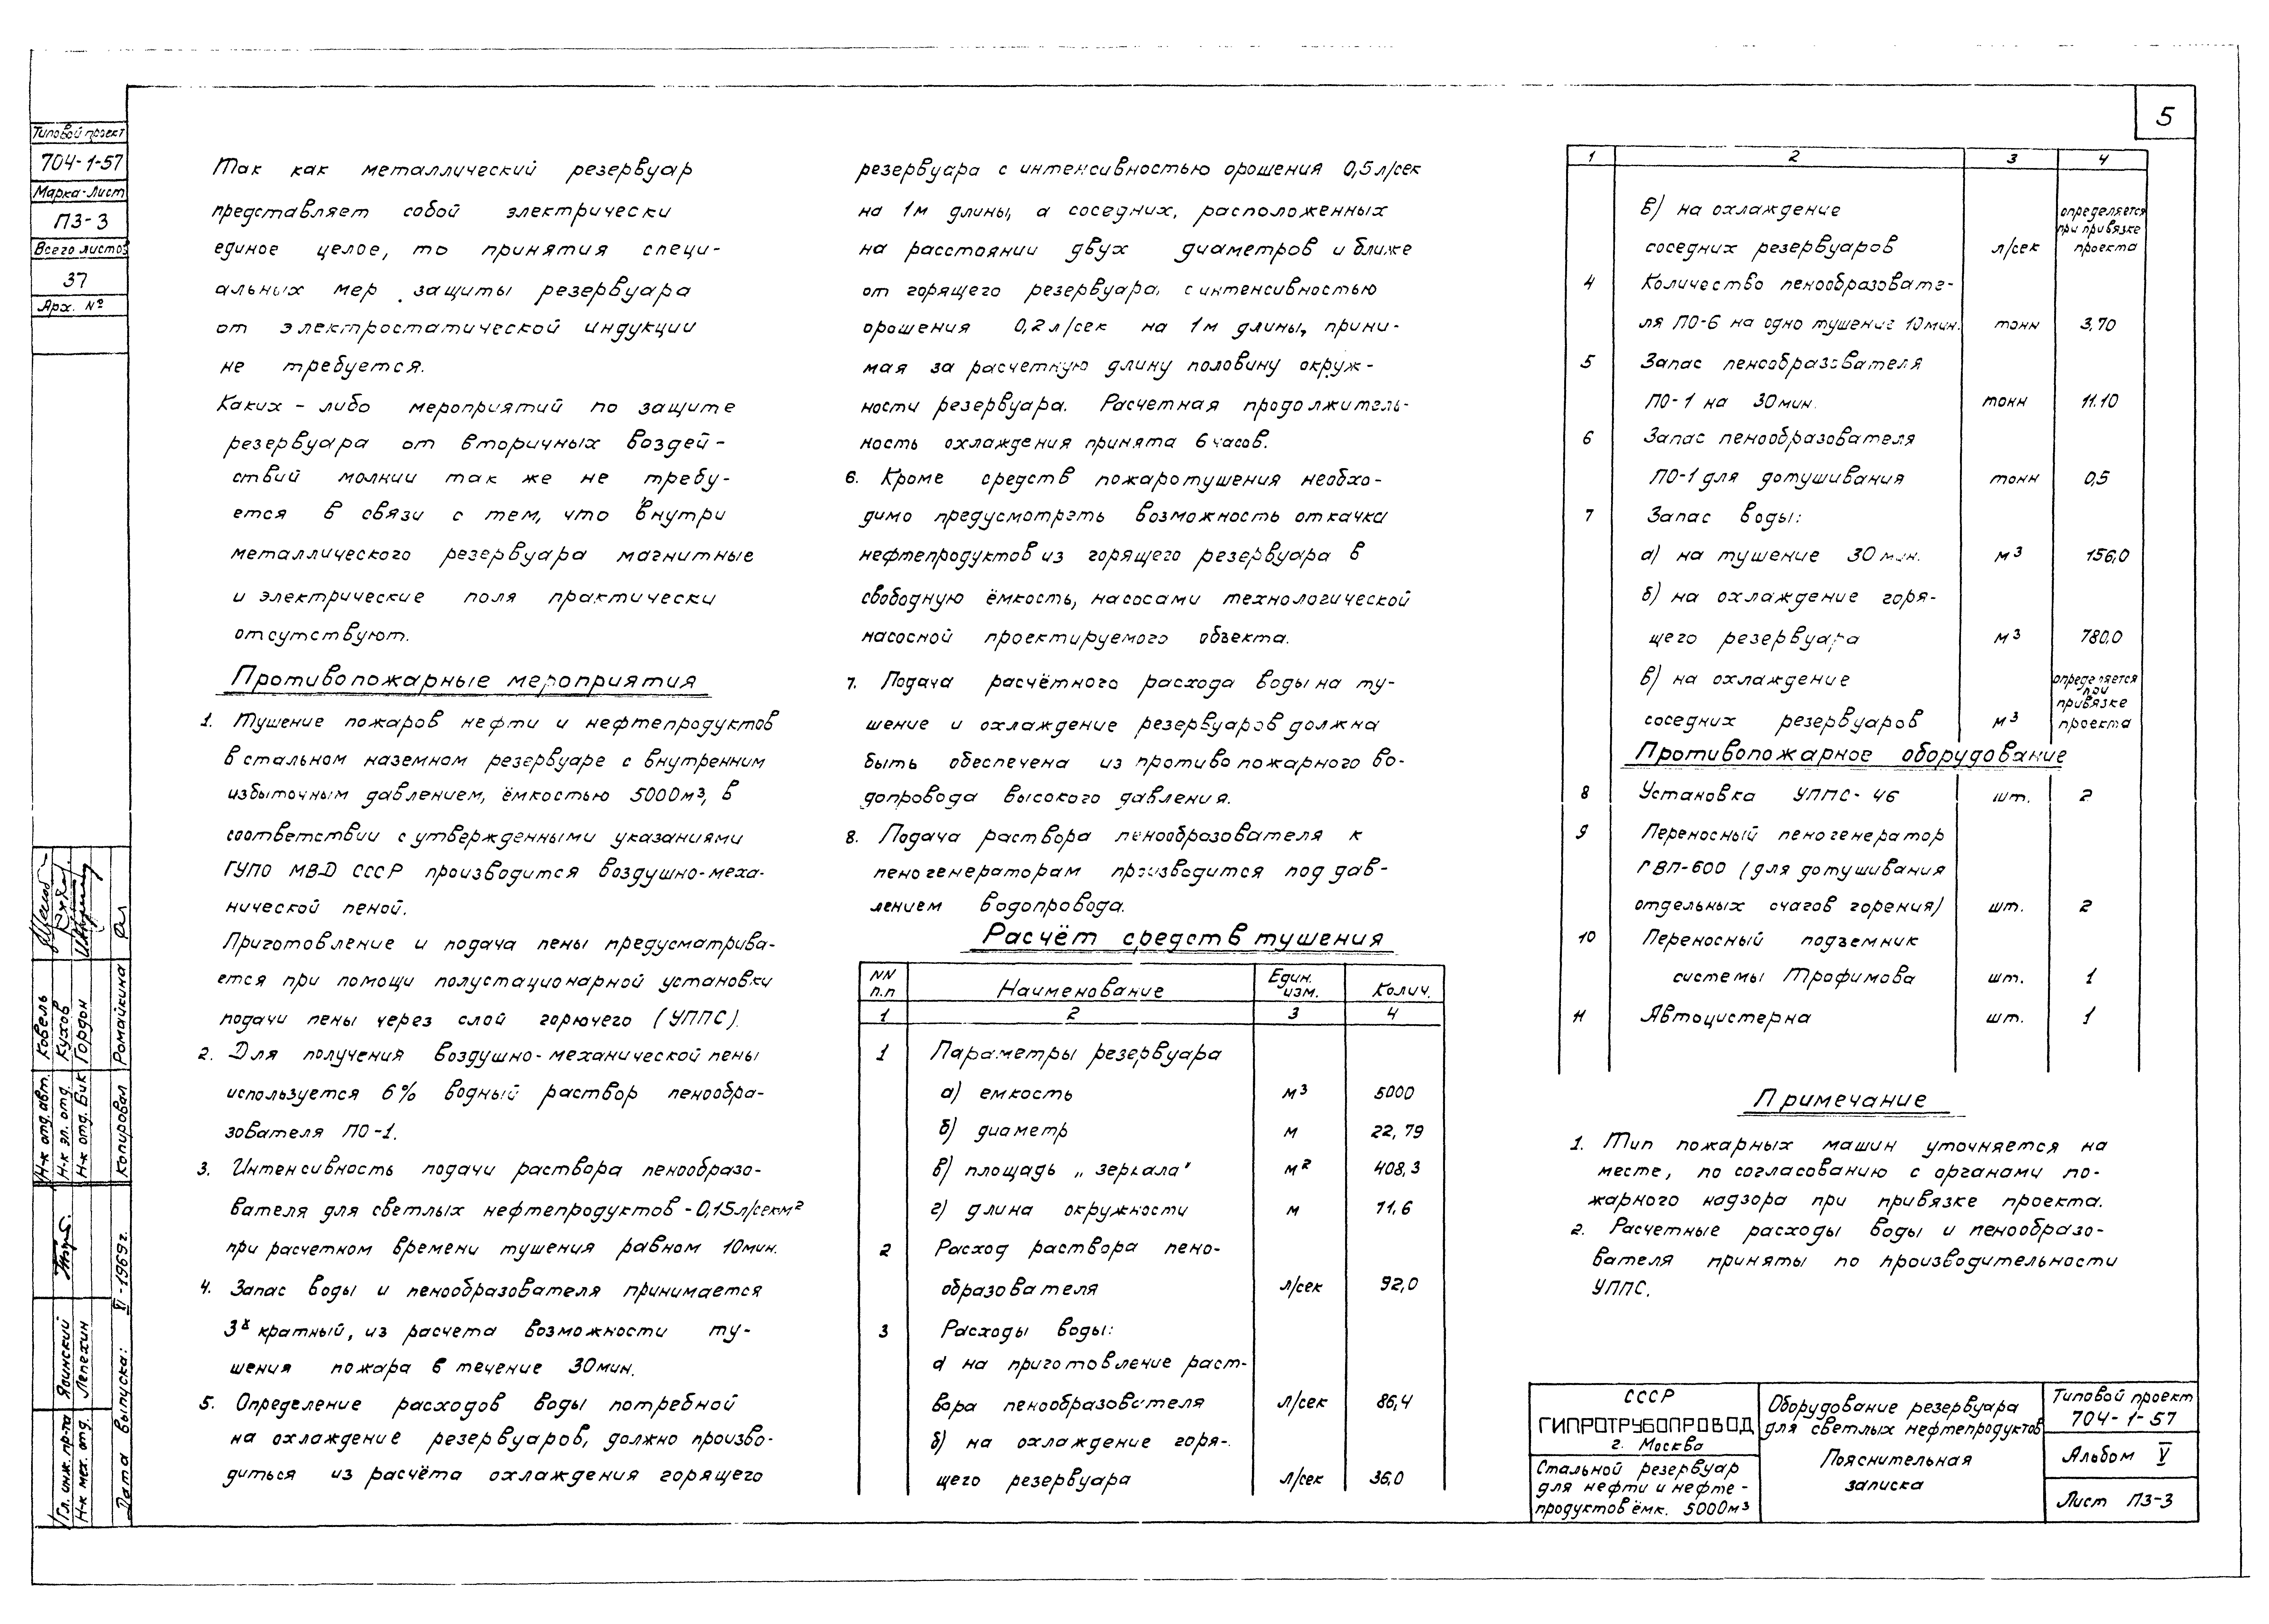 5
Типовой проект
704-1-57
Марка-Лист
ПЗ-3
Всего листов
37
Арх. №
Так как металлический резервуар
представляет собой электрически
единое целое, то принятия специ-
альных мер защиты резервуара
от электростатической индукции
не требуется.
Каких-либо мероприятий по защите
резервуара от вторичных воздей-
ствий молнии так же не требу-
ется в связи с тем, что внутри
металлического резервуара магнитные
и электрические поля практически
отсутствуют.
Противопожарные мероприятия
1. Тушение пожаров нефти и нефтепродуктов
в стальном наземном резервуаре с внутренним
избыточным давлением, ёмкостью 5000м³, в
соответствии с утвержденными указаниями
ГУПО МВД СССР производится воздушно-меха-
нической пеной.
Приготовление и подача пены предусматрива-
ется при помощи полустационарной установки
подачи пены через слой горючего (УППС).
2. Для получения воздушно-механической пены
используется 6% водный раствор пенообра-
зователя ПО-1.
3. Интенсивность подачи раствора пенообразо-
вателя для светлых нефтепродуктов - 0,15л/секм²
при расчетном времени тушения равном 10мин.
4. Запас воды и пенообразователя принимается
3х кратный, из расчета возможности ту-
шения пожара в течение 30мин.
5. Определение расходов воды потребной
на охлаждение резервуаров, должно произво-
диться из расчёта охлаждения горящего
резервуара с интенсивностью орошения 0,5л/сек
на 1м длины, а соседних, расположенных
на расстоянии двух диаметров и ближе
от горящего резервуара, с интенсивностью
орошения 0,2л/сек на 1м длины, прини-
мая за расчетную длину половину окруж-
ности резервуара. Расчетная продолжитель-
ность охлаждения принята 6 часов.
6. Кроме средств пожаротушения необхо-
димо предусмотреть возможность откачки
нефтепродуктов из горящего резервуара в
свободную ёмкость, насосами технологической
насосной проектируемого объекта.
7. Подача расчётного расхода воды на ту-
шение и охлаждение резервуаров должна
быть обеспечена из противопожарного во-
допровода высокого давления.
8. Подача раствора пенообразователя к
пеногенераторам производится под дав-
лением водопровода.
Расчёт средств тушения
NN п.п Наименование Един. изм. Колич.
1 2 3 4
1 Параметры резервуара
а) емкость м³ 5000
б) диаметр м 22,79
в) площадь „зеркала" м² 408,3
г) длина окружности м 71,6
2 Расход раствора пено-
образователя л/сек 92,0
3 Расходы воды:
а) на приготовление раст-
вора пенообразователя л/сек 86,4
б) на охлаждение горя-
щего резервуара л/сек 36,0
1 2 3 4
в) на охлаждение
соседних резервуаров л/сек определяется при привязке проекта
4 Количество пенообразовате-
ля ПО-6 на одно тушение 10мин. тонн 3,70
5 Запас пенообразователя
ПО-1 на 30мин. тонн 11.10
6 Запас пенообразователя
ПО-1 для дотушивания тонн 0,5
7 Запас воды:
а) на тушение 30мин. м³ 156,0
б) на охлаждение горя-
щего резервуара м³ 780,0
в) на охлаждение
соседних резервуаров м³ определяется при привязке проекта
Противопожарное оборудование
8 Установка УППС-46 шт. 2
9 Переносный пеногенератор
ГВП-600 (для дотушивания
отдельных очагов горения) шт. 2
10 Переносный подъемник
системы Трофимова шт. 1
11 Автоцистерна шт. 1
Примечание
1. Тип пожарных машин уточняется на
месте, по согласованию с органами по-
жарного надзора при привязке проекта.
2. Расчетные расходы воды и пенообразо-
вателя приняты по производительности
УППС.
СССР
ГИПРОТРУБОПРОВОД
г. Москва
Стальной резервуар
для нефти и нефте-
продуктов ёмк. 5000м³
Оборудование резервуара
для светлых нефтепродуктов
Пояснительная
записка
Типовой проект
704-1-57
Альбом V
Лист ПЗ-3
Н-к отд. авт. Ковель
Н-к эл. отд. Кухов
Н-к отд. БиК Гордон
Копировал Ромайкина
Гл. инж. пр-та Явинский
Н-к мех. отд. Лепехин
Дата выпуска: VI-1969г.